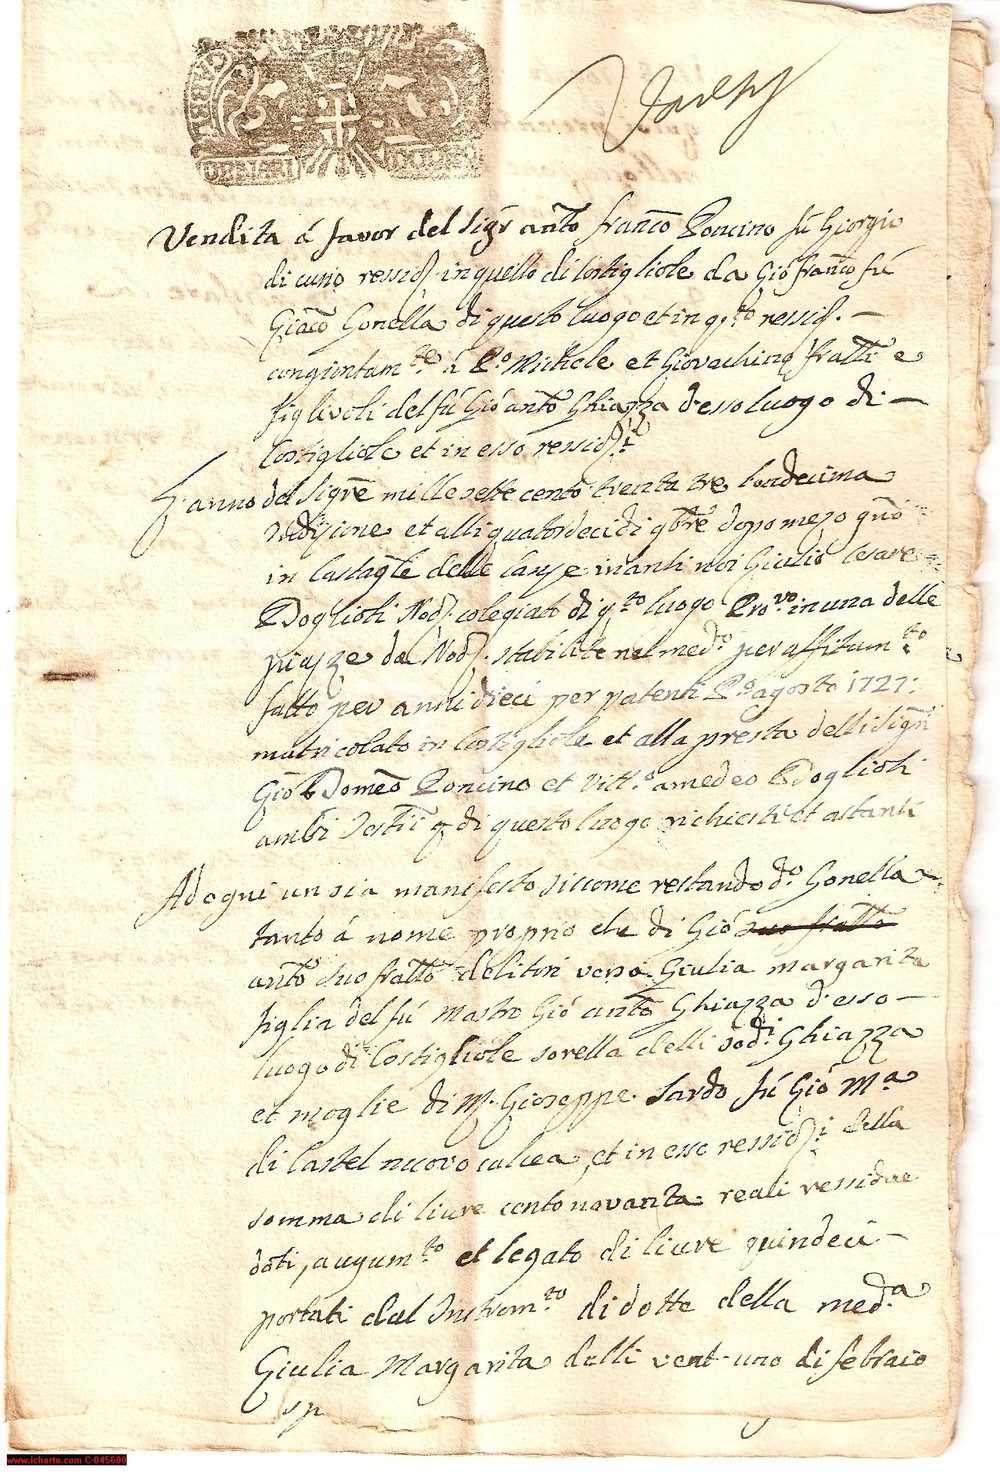 Vendita á favor del Sigr anto franco Poncino fú Giorgio
di cuneo ressid in quello di Costigliole da Gió franco fú
Giaco Gonella di questo luogo et in q.to ressid. —
congiontam.te á P.o Michele et Giovachino fratti e
figlivoli del fú Gió anto Ghiazza d'esso luogo di —
Costigliole et in esso ressid.ti
L'anno del Sigre mille sette cento trenta tre l'ondecima
Indizione et alli quatordeci di qbre dopo mezo
in Castagle delle Lanze inanti noi Giulio Cesare
Doglioti Nod. colegiato di q.to luogo Pro.vo in una delle
piazze da Nod. stabilite nel med.o per affittam.to
fatto per anni dieci per patenti P.o agosto 1727:
matricolato in Costigliole et alla presta delli Sigri
Gió Domeo Poncino et Vitt.o amedeo Doglioti
ambi Testii di questo luogo richiesti et astanti
Ad ogni un sia manifesto siccome restando d.o Gonella
tanto á nome proprio che di Gió suo fratto
anto suo fratto debitori verso Giulia margarita
figlia del fú Mastro Gió anto Ghiazza d'esso —
luogo di Costigliole sorella delli sod.i Ghiazza
et moglie di M. Gioseppe Sardo fú Gió M.a
di Castel nuovo calcea, et in esso ressid.i della
somma di livre cento novanta reali ressidue
doti, augum.to et legato di livre quindeci —
portati dal Instrom.to di dotte della med.a
Giulia Margarita delli vent-uno di febraio
www.icharta.com C-045600